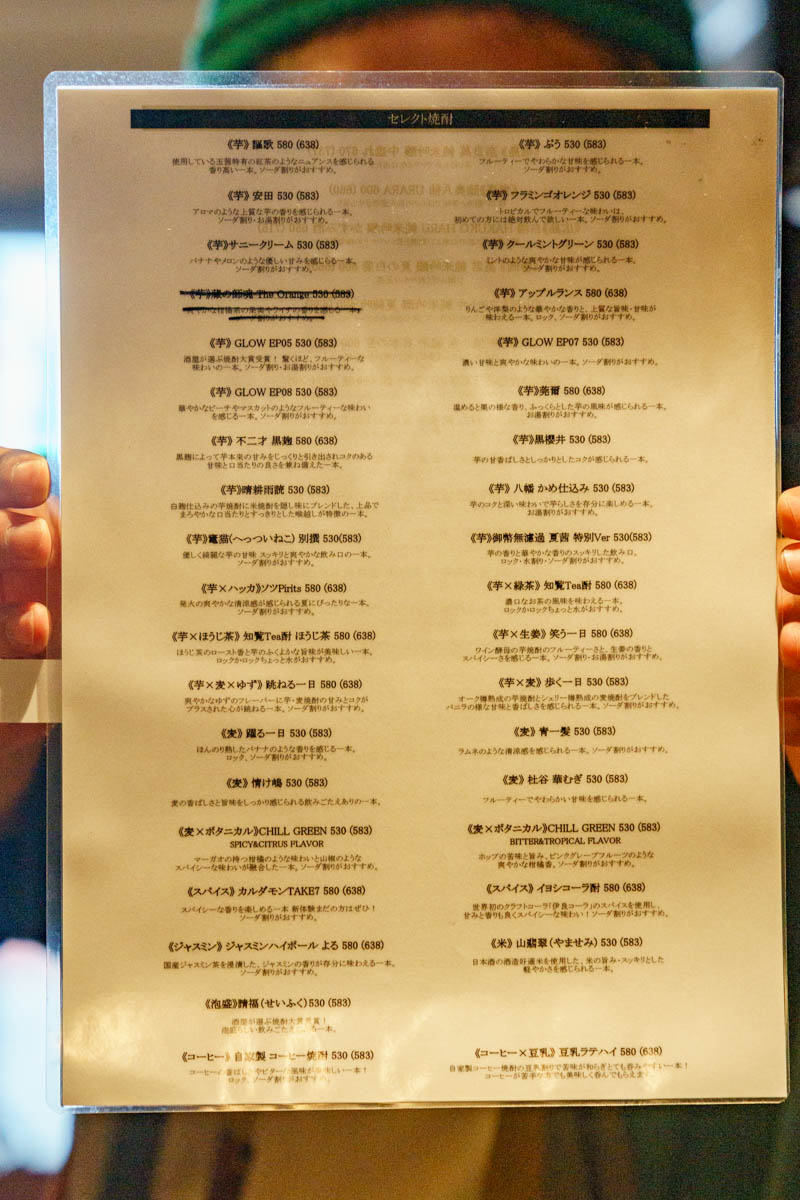 セレクト焼酎
《芋》 謳歌 580 (638)
使用している玉茜特有の紅茶のようなニュアンスを感じられる
香り高い一本。ソーダ割りがおすすめ。
《芋》 安田 530 (583)
アロマのような上質な芋の香りを感じられる一本。
ソーダ割り・お湯割りがおすすめ。
《芋》サニークリーム 530 (583)
バナナやメロンのような優しい甘みを感じる一本。
ソーダ割りがおすすめ。
The Orange 530 (583)
《芋》 GLOW EP05 530 (583)
酒屋が選ぶ焼酎大賞受賞！ 驚くほど、フルーティーな
味わいの一本。ソーダ割り・お湯割りがおすすめ。
《芋》 GLOW EP08 530 (583)
華やかなピーチやマスカットのようなフルーティーな味わい
を感じる一本。ソーダ割りがおすすめ。
《芋》 不二才 黒麹 580 (638)
黒麹によって芋本来の甘みをじっくりと引き出されコクのある
甘味と口当たりの良さを兼ね備えた一本。
《芋》晴耕雨読 530 (583)
白麹仕込みの芋焼酎に米焼酎を隠し味にブレンドした、上品で
まろやかな口当たりとすっきりとした喉越しが特徴の一本。
《芋》竈猫(へっついねこ) 別撰 530(583)
優しく綺麗な芋の甘味 スッキリと爽やかな飲み口の一本。
ソーダ割りがおすすめ。
《芋×ハッカ》ソツPirits 580 (638)
発火の爽やかな清涼感が感じられる夏にぴったりな一本。
ソーダ割りがおすすめ。
《芋×ほうじ茶》 知覧Tea酎 ほうじ茶 580 (638)
ほうじ茶のロースト香と芋のふくよかな旨味が美味しい一本。
ロックかロックちょっと水がおすすめ。
《芋×麦×ゆず》 跳ねる一日 580 (638)
爽やかなゆずのフレーバーに芋・麦焼酎の甘みとコクが
プラスされた心が跳ねる一本。ソーダ割りがおすすめ。
《麦》 躍る一日 530 (583)
ほんのり熟したバナナのような香りを感じる一本。
ロック、ソーダ割りがおすすめ。
《麦》 情け嶋 530 (583)
麦の香ばしさと旨味をしっかり感じられる飲みごたえありの一本。
《麦×ボタニカル》CHILL GREEN 530 (583)
SPICY&CITRUS FLAVOR
マーガオの持つ柑橘のような味わいと山椒のような
スパイシーな味わいが融合した一本。ソーダ割りがおすすめ。
《スパイス》 カルダモンTAKE7 580 (638)
スパイシーな香りを楽しめる一本 新体験まだの方はぜひ！
ソーダ割りがおすすめ。
《ジャスミン》 ジャスミンハイボール よる 580 (638)
国産ジャスミン茶を浸漬した、ジャスミンの香りが存分に味わえる一本。
ソーダ割りがおすすめ。
《泡盛》請福(せいふく)530 (583)
酒屋が選ぶ焼酎大賞受賞！
《コーヒー》 自家製 コーヒー焼酎 530 (583)
ロック、ソーダ割りがおすすめ。
《芋》 ぷう 530 (583)
フルーティーでやわらかな甘味を感じられる一本。
ソーダ割りがおすすめ。
《芋》 フラミンゴオレンジ 530 (583)
トロピカルでフルーティーな味わいは、
初めての方には絶対飲んで欲しい一本。ソーダ割りがおすすめ。
《芋》 クールミントグリーン 530 (583)
ミントのような爽やかな甘味が感じられる一本。
ソーダ割りがおすすめ。
《芋》 アップルランス 580 (638)
りんごや洋梨のような華やかな香りと、上質な旨味・甘味が
味わえる一本。ロック、ソーダ割りがおすすめ。
《芋》 GLOW EP07 530 (583)
濃い甘味と爽やかな味わいの一本。ソーダ割りがおすすめ。
《芋》莞爾 580 (638)
温めると栗の様な香り、ふっくらとした芋の風味が感じられる一本。
お湯割りがおすすめ。
《芋》黒櫻井 530 (583)
芋の甘香ばしさとしっかりとしたコクが感じられる一本。
《芋》 八幡 かめ仕込み 530 (583)
芋のコクと深い味わいで芋らしさを存分に楽しめる一本。
お湯割りがおすすめ。
《芋》御幣無濾過 夏茜 特別Ver 530(583)
芋の香りと華やかな香りのスッキリした飲み口。
ロック・水割り・ソーダ割りがおすすめ。
《芋×緑茶》 知覧Tea酎 580 (638)
濃口なお茶の風味を味わえる一本。
ロックかロックちょっと水がおすすめ。
《芋×生姜》 笑う一日 580 (638)
ワイン酵母の芋焼酎のフルーティーさと、生姜の香りと
スパイシーさを感じる一本。ソーダ割り・お湯割りがおすすめ。
《芋×麦》 歩く一日 530 (583)
オーク樽熟成の芋焼酎とシェリー樽熟成の麦焼酎をブレンドした
バニラの様な甘味と香ばしさを感じる一本。ソーダ割りがおすすめ。
《麦》 青一髪 530 (583)
ラムネのような清涼感を感じられる一本。ソーダ割りがおすすめ。
《麦》 杜谷 華むぎ 530 (583)
フルーティーでやわらかい甘味を感じられる一本。
《麦×ボタニカル》CHILL GREEN 530 (583)
BITTER&TROPICAL FLAVOR
ホップの苦味と旨み、ピンクグレープフルーツのような
爽やかな柑橘香。ソーダ割りがおすすめ。
《スパイス》 イヨシコーラ酎 580 (638)
世界初のクラフトコーラ「伊良コーラ」のスパイスを使用し、
甘みと香りも良くスパイシーな味わい！ソーダ割りがおすすめ。
《米》 山翡翠 (やませみ) 530 (583)
日本酒の酒造好適米を使用した、米の旨み・スッキリとした
軽やかさを感じられる一本。
《コーヒー×豆乳》 豆乳ラテハイ 580 (638)
自家製コーヒー焼酎の豆乳割りで苦味が和らぎとても呑みやすい一本！
コーヒーが苦手な方でも美味しく呑んでもらえます。